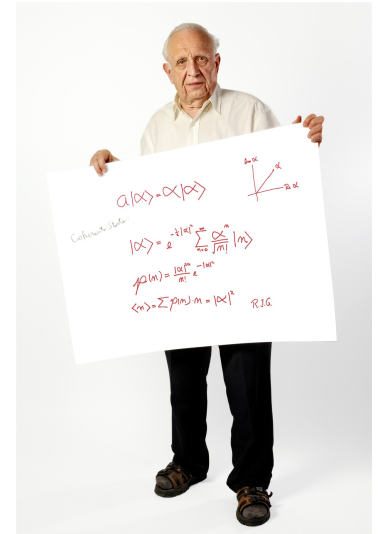 a|α⟩=α|α⟩
Im α
α
Re α
Coherent State
|α⟩ = e^{-½|α|²} ∑_{n=0}^{∞} αⁿ/√n! |n⟩
p(n) = |α|^{2n}/n! e^{-|α|²}
⟨n⟩ = ∑ p(n)·n = |α|²
R.J.G.